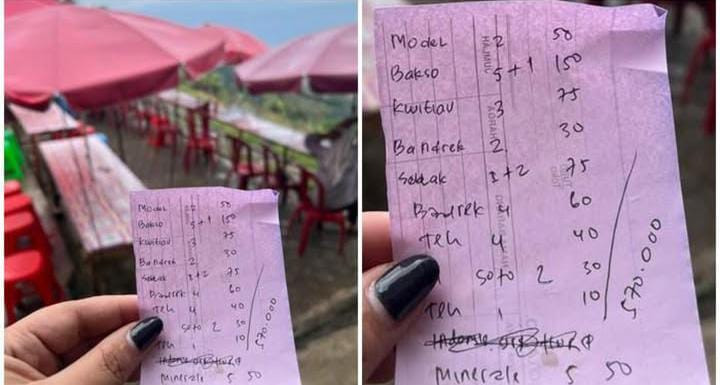 Model 2 50
Bakso 5+1 150
Kwitiau 3 75
Bandrek 2 30
Seblak 1+2 75
Bandrek 4 60
Teh 4 40
Soto 2 30
Teh 1 10
570.000
Minerale 5 50
Model 2 50
Bakso 5+1 150
Kwitiau 3 75
Bandrek 2. 30
Seblak 1+2 75
Bandrek 4 60
Teh 4 40
Soto 2 30
Teh 1 10
570.000
Minerale 5 50